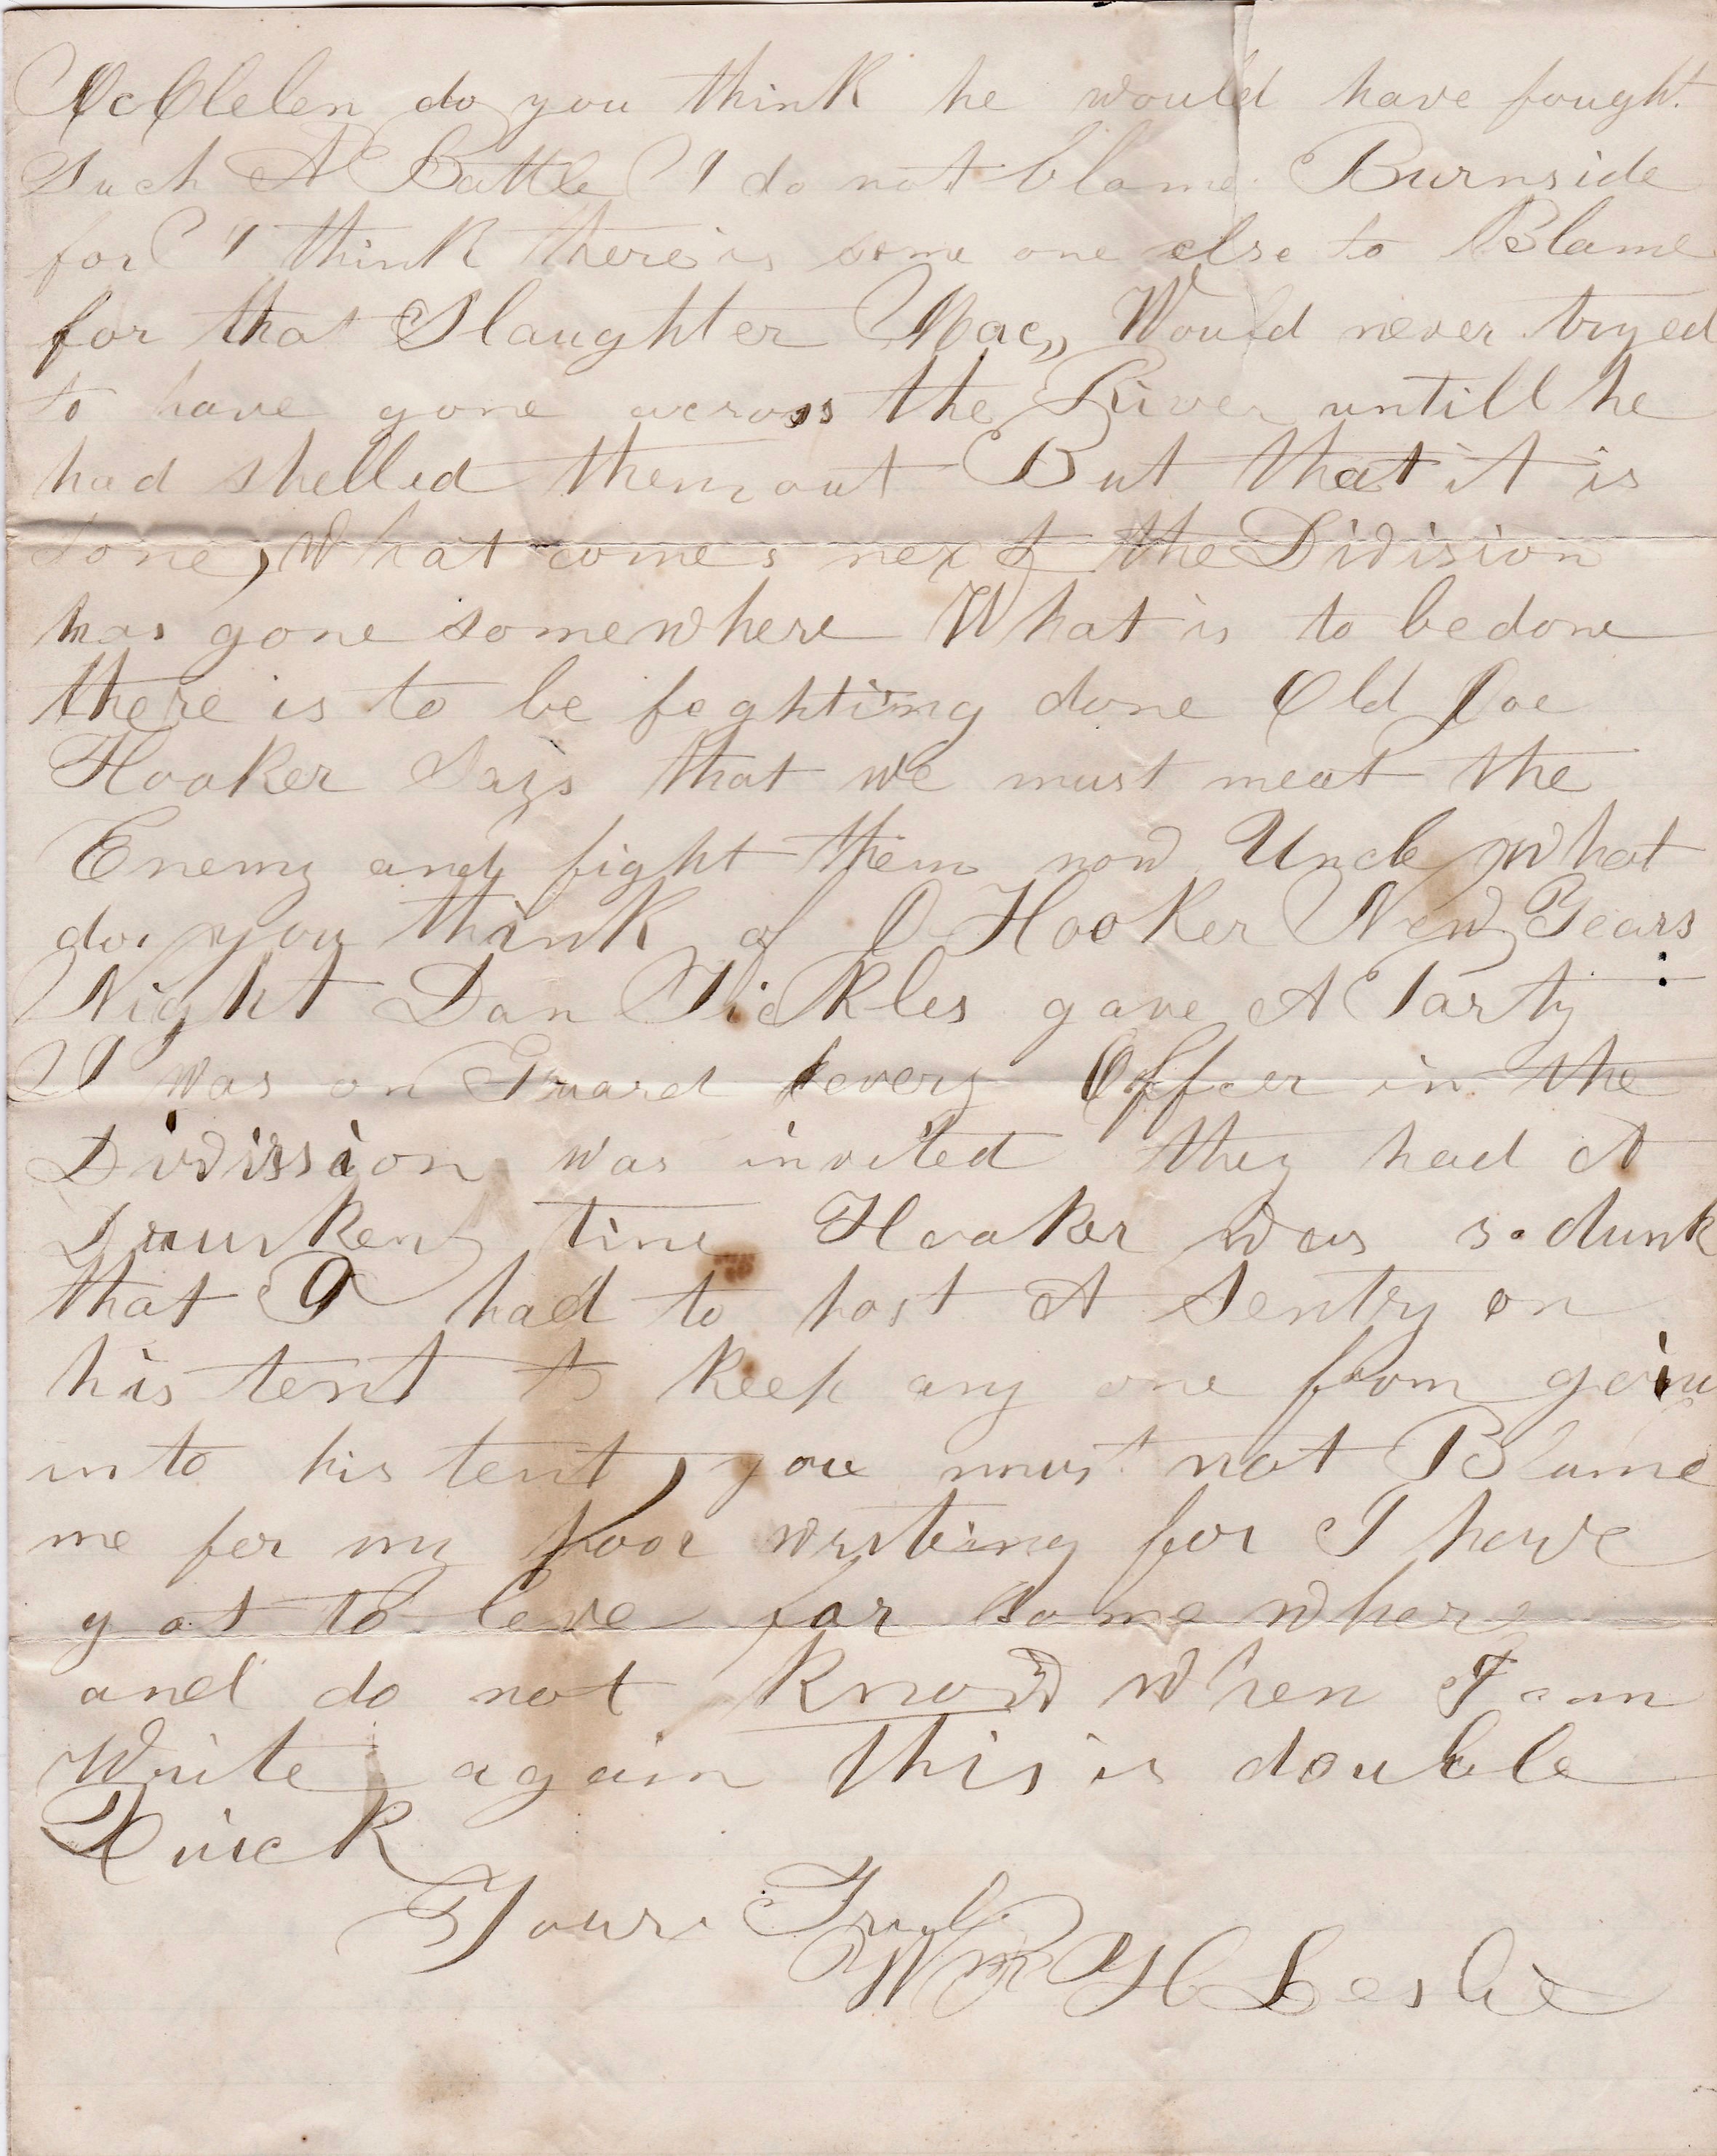 McClelen do you think he would have fought
Such A Battle I do not blame Burnside
for I think there is some one else to Blame
for that Slaughter Mac,, Would never tryed
to have gone across the River untill he
had shelled them out But that it is
done, What comes next the Division
has gone somewhere What is to be done
there is to be feghting done Old Joe
Hooker Says that we must meat the
Enemy and fight them now Uncle what
do you think of J Hooker New Years
Night Dan Sickles gave A Party :
I was on Guard every Officer in the
Divission was invited they had A
Drunken time Hooker was so dunk
that I had to post A Sentry on
his tent to keep any one from goin
into his tent, you must not Blame
me for my poor writeing for I have
got to leve for Some where
and do not know when I can
Write again this is double
Quick
Yours Truly
Wm H Leslie